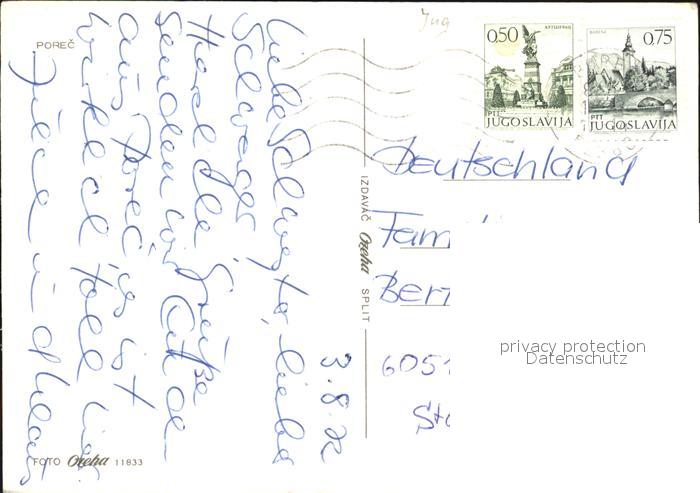 Jug
POREČ
0,50
KRUŠEVAC
PTT
JUGOSLAVIJA
0,75
PTT
JUGOSLAVIJA
Liebe Schwester, liebe
Schwager
Herzliche Grüße
senden wir Euch
aus Poreč. es ist
wirklich toll hier
3.8.72
IZDAVAČ Oreha SPLIT
Deutschland
Fam
Ber
6051
privacy protection
Datenschutz
FOTO Oreha 11833